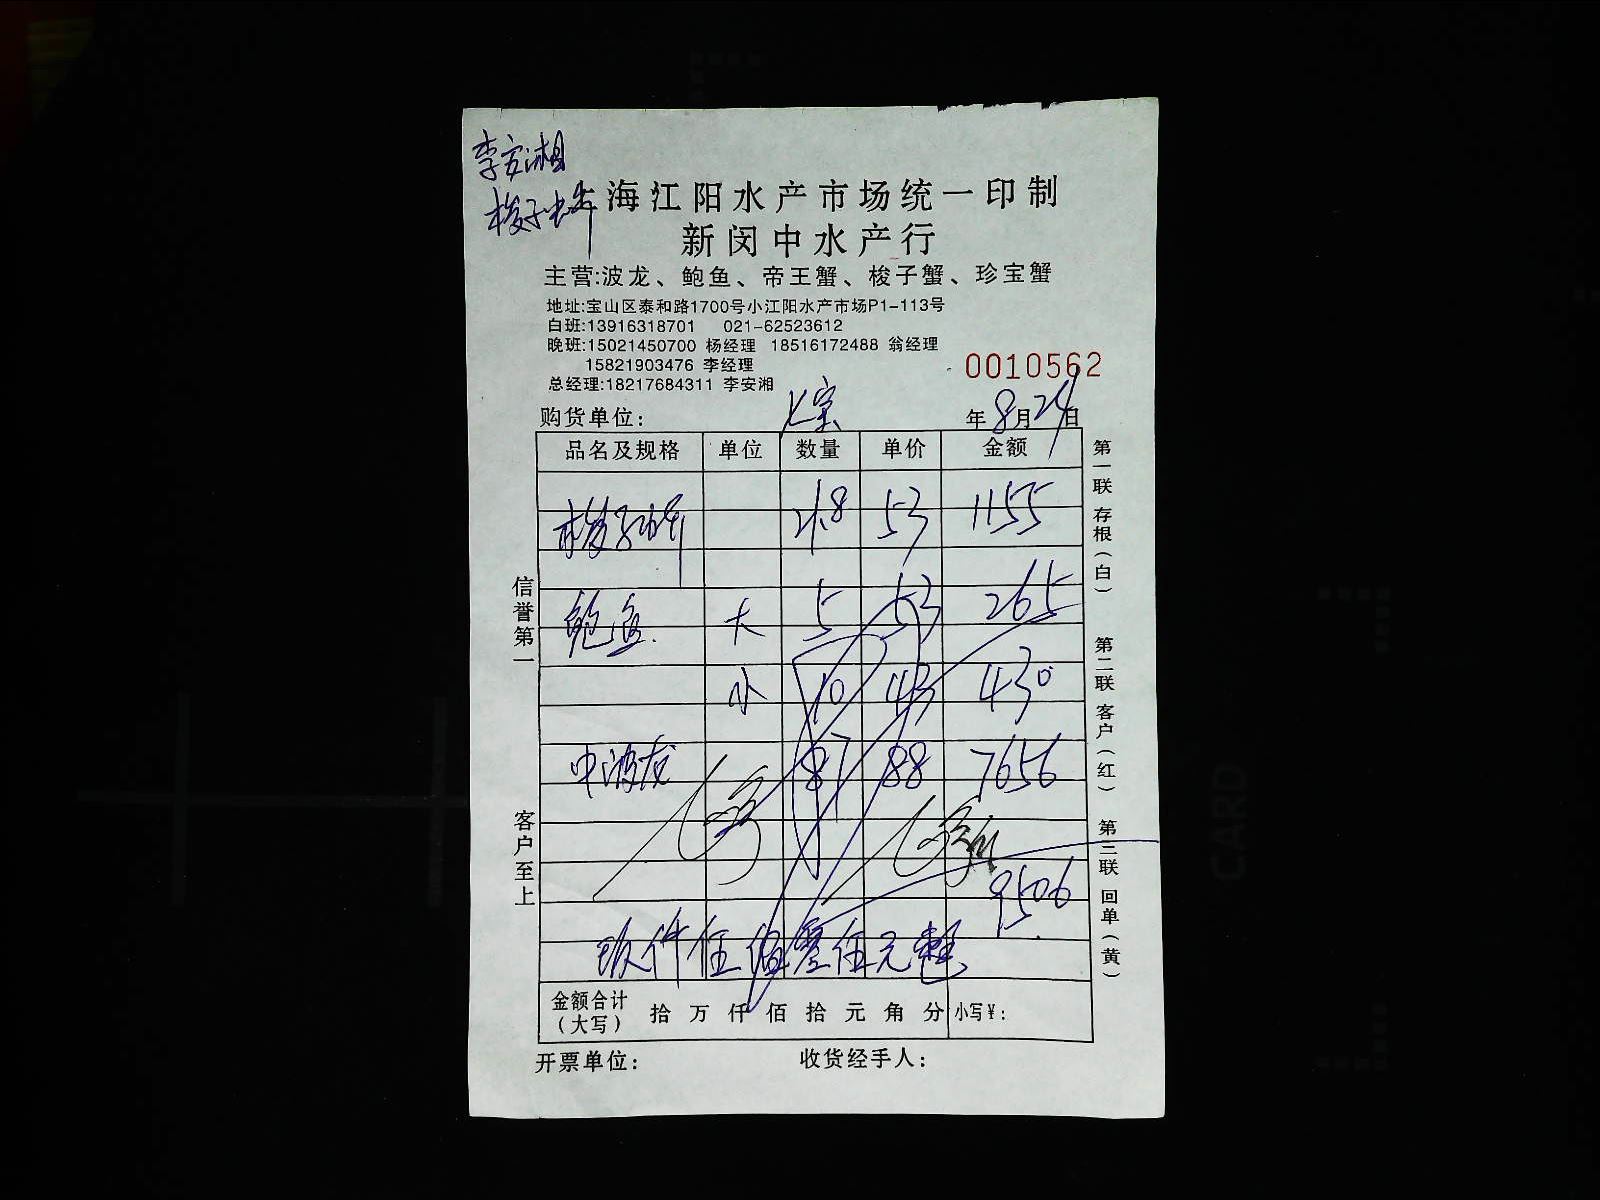 李安湘
梭子蟹
上海江阳水产市场统一印制
新闵中水产行
主营:波龙、鲍鱼、帝王蟹、梭子蟹、珍宝蟹
地址:宝山区泰和路1700号小江阳水产市场P1-113号
白班:13916318701 021-62523612
晚班:15021450700 杨经理 18516172488 翁经理
15821903476 李经理
总经理:18217684311 李安湘
0010562
购货单位: 七宝 年8月24日
品名及规格 单位 数量 单价 金额
梭子蟹 21.8 53 1155
鲍鱼 大 5 53 265
小 10 43 430
中波龙 87 88 7656
9506
玖仟伍佰零陆元整
金额合计(大写) 拾 万 仟 佰 拾 元 角 分 小写¥:
开票单位: 收货经手人:
信誉第一
客户至上
第一联 存根(白)
第二联 客户(红)
第三联 回单(黄)
CARD